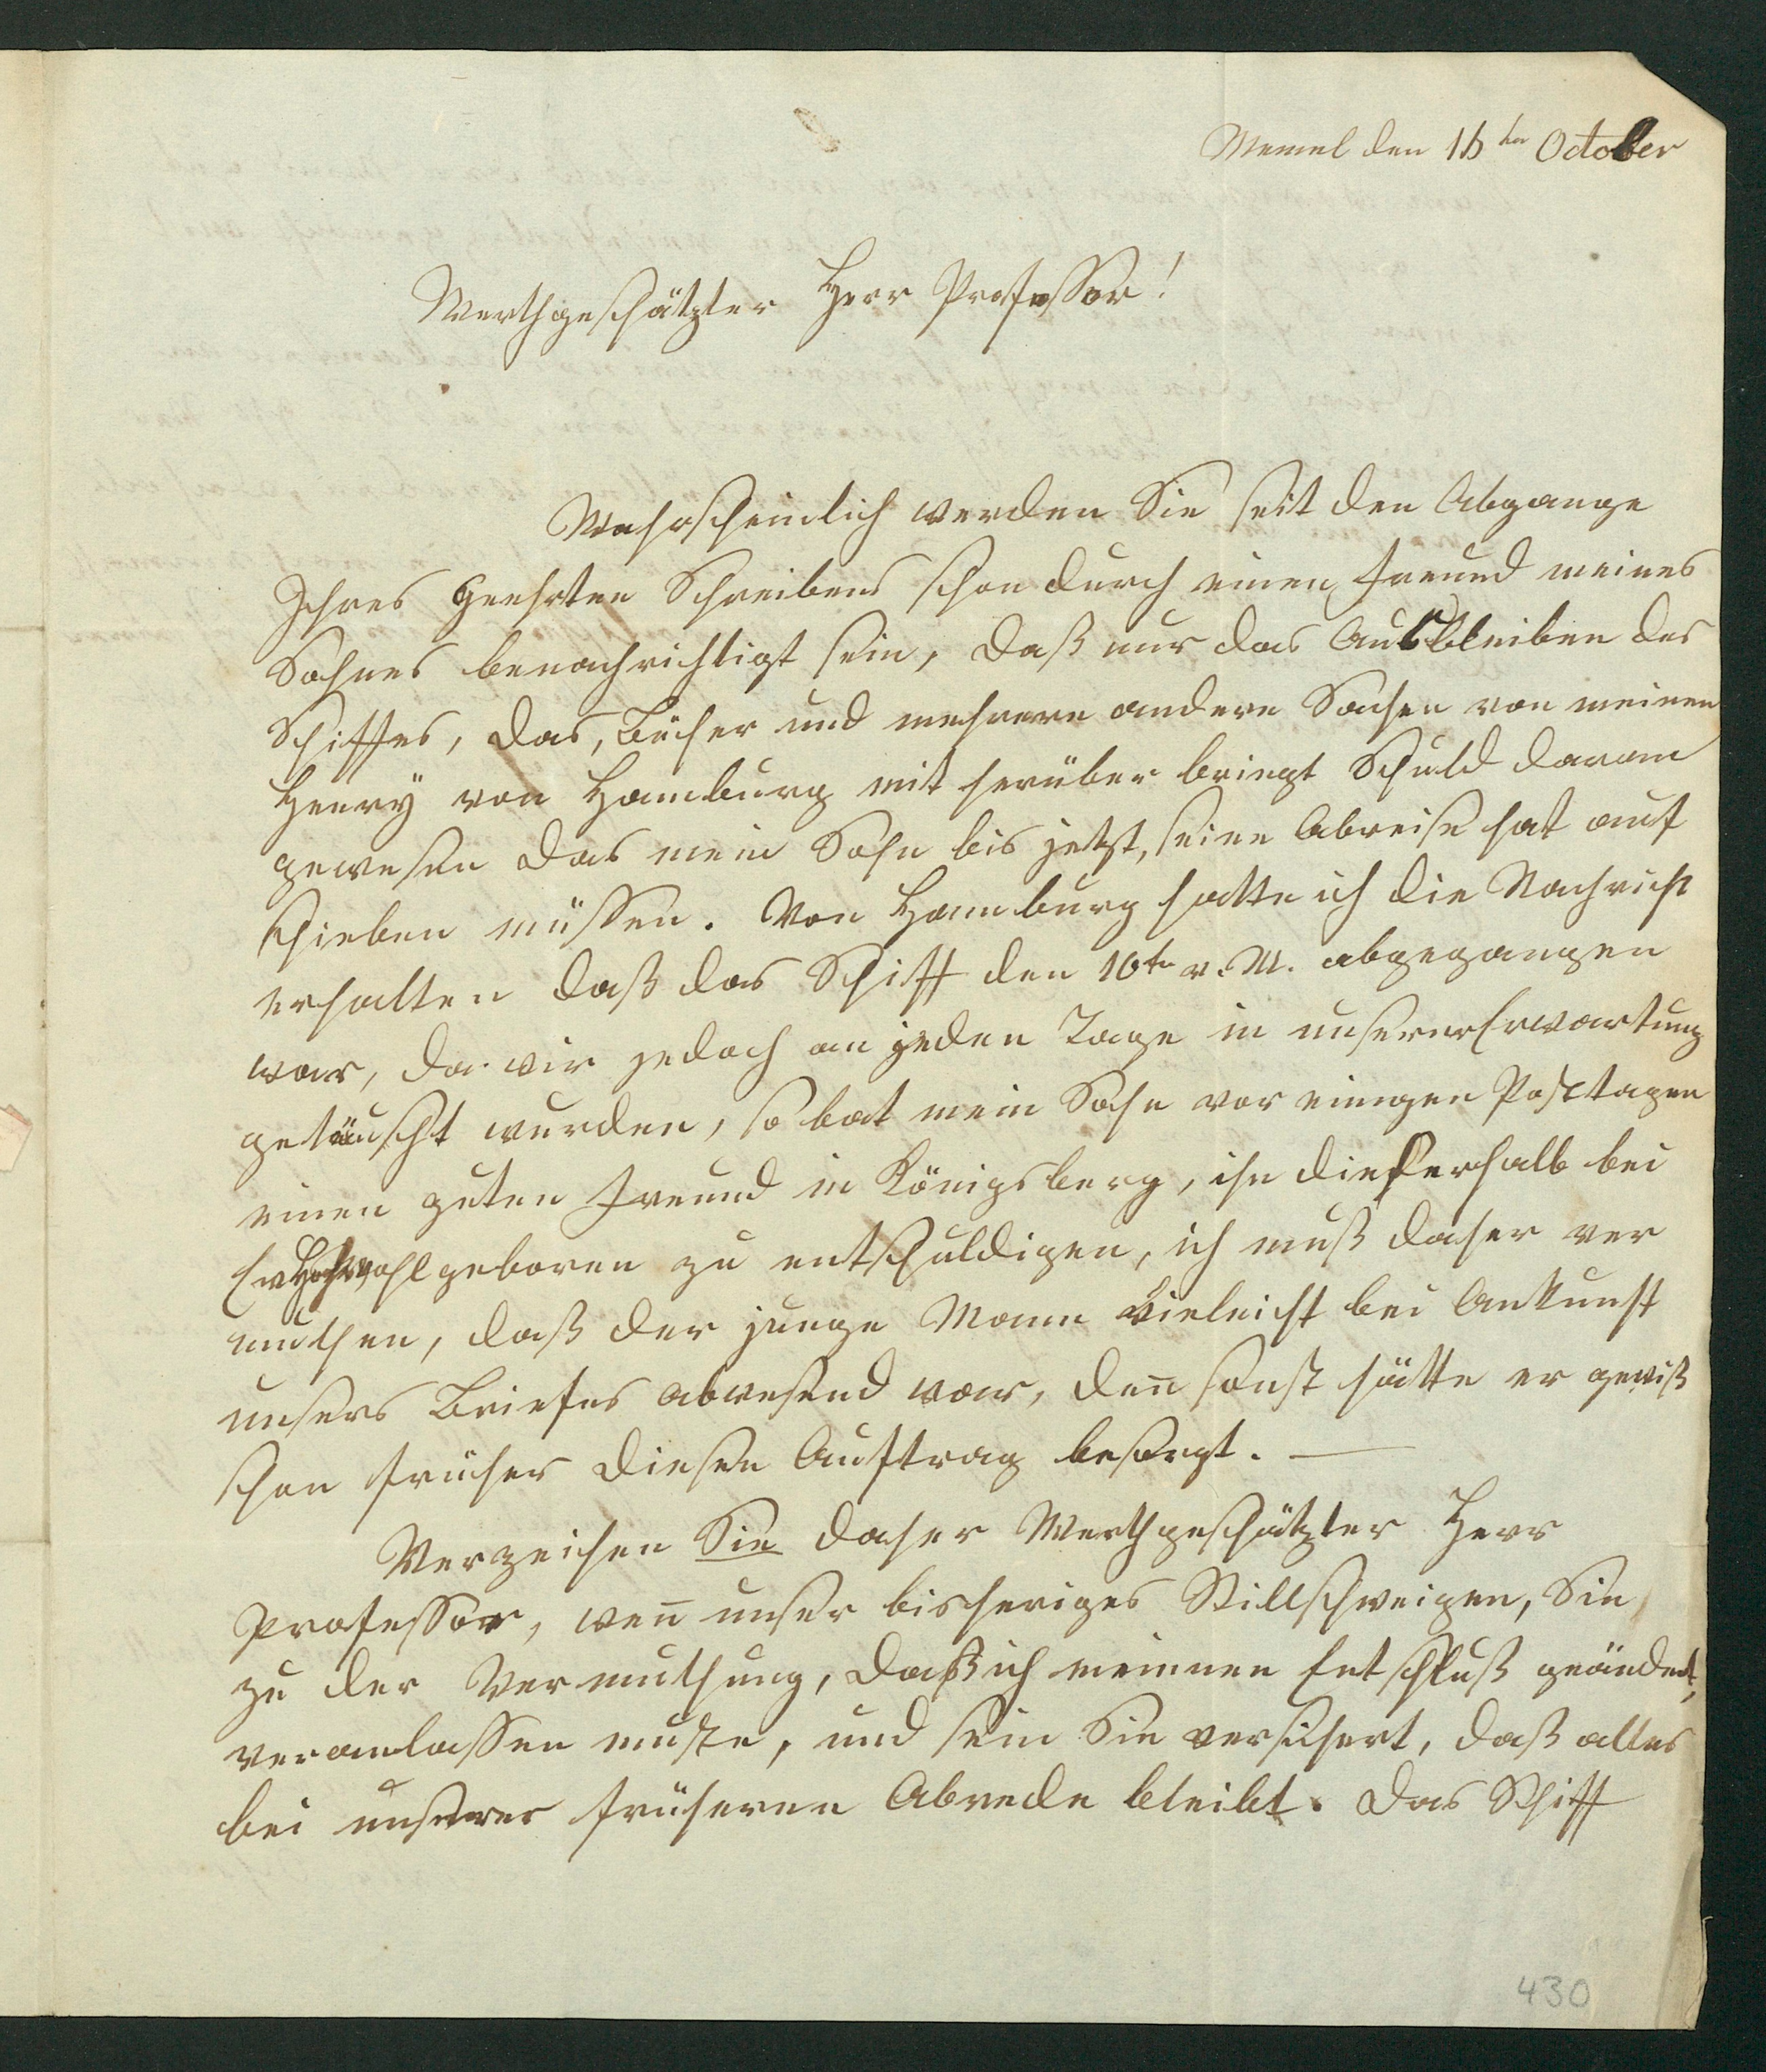 Memel den 16ten October
Werthgeschätzter Herr Professor!
Wahrscheinlich werden Sie seit den Abgange
Ihres geehrten Schreibens schon durch einen Freund meines
Sohnes benachrichtigt sein, daß nur das Ausbleiben des
Schiffes, das, Bücher und mehrere andere Sachen von meinen
Henry von Hamburg mit herüber bringt Schuld daran
gewesen das mein Sohn bis jetzt, seine Abreise hat auf
schieben müssen. Von Hamburg hatte ich die Nachricht
erhalten daß das Schiff den 10te v. M. abgegangen
war, da wir jedoch an jeden Tage in unserer Erwartung
getäuscht wurden, so bat mein Sohn vor einigen Posttagen
einen guten Freund in Königsberg, ihn dieserhalb bei
Ew Hochwohlgeboren zu entschuldigen, ich muß daher ver
muthen, daß der junge Mann vieleicht bei Ankunft
unsers Briefes abwesend war, den̄ sonst hätte er gewiß
schon früher diesen Auftrag besorgt. —
Verzeihen Sie daher Werthgeschätzter Herr
Professor, wen̄ unser bisheriges Stillschweigen, Sie
zu der Vermuthung, daß ich meinen Entschluß geändert,
veranlassen muste, und sein Sie versichert, daß alles
bei unserer früheren Abrede bleibt. Das Schiff
430